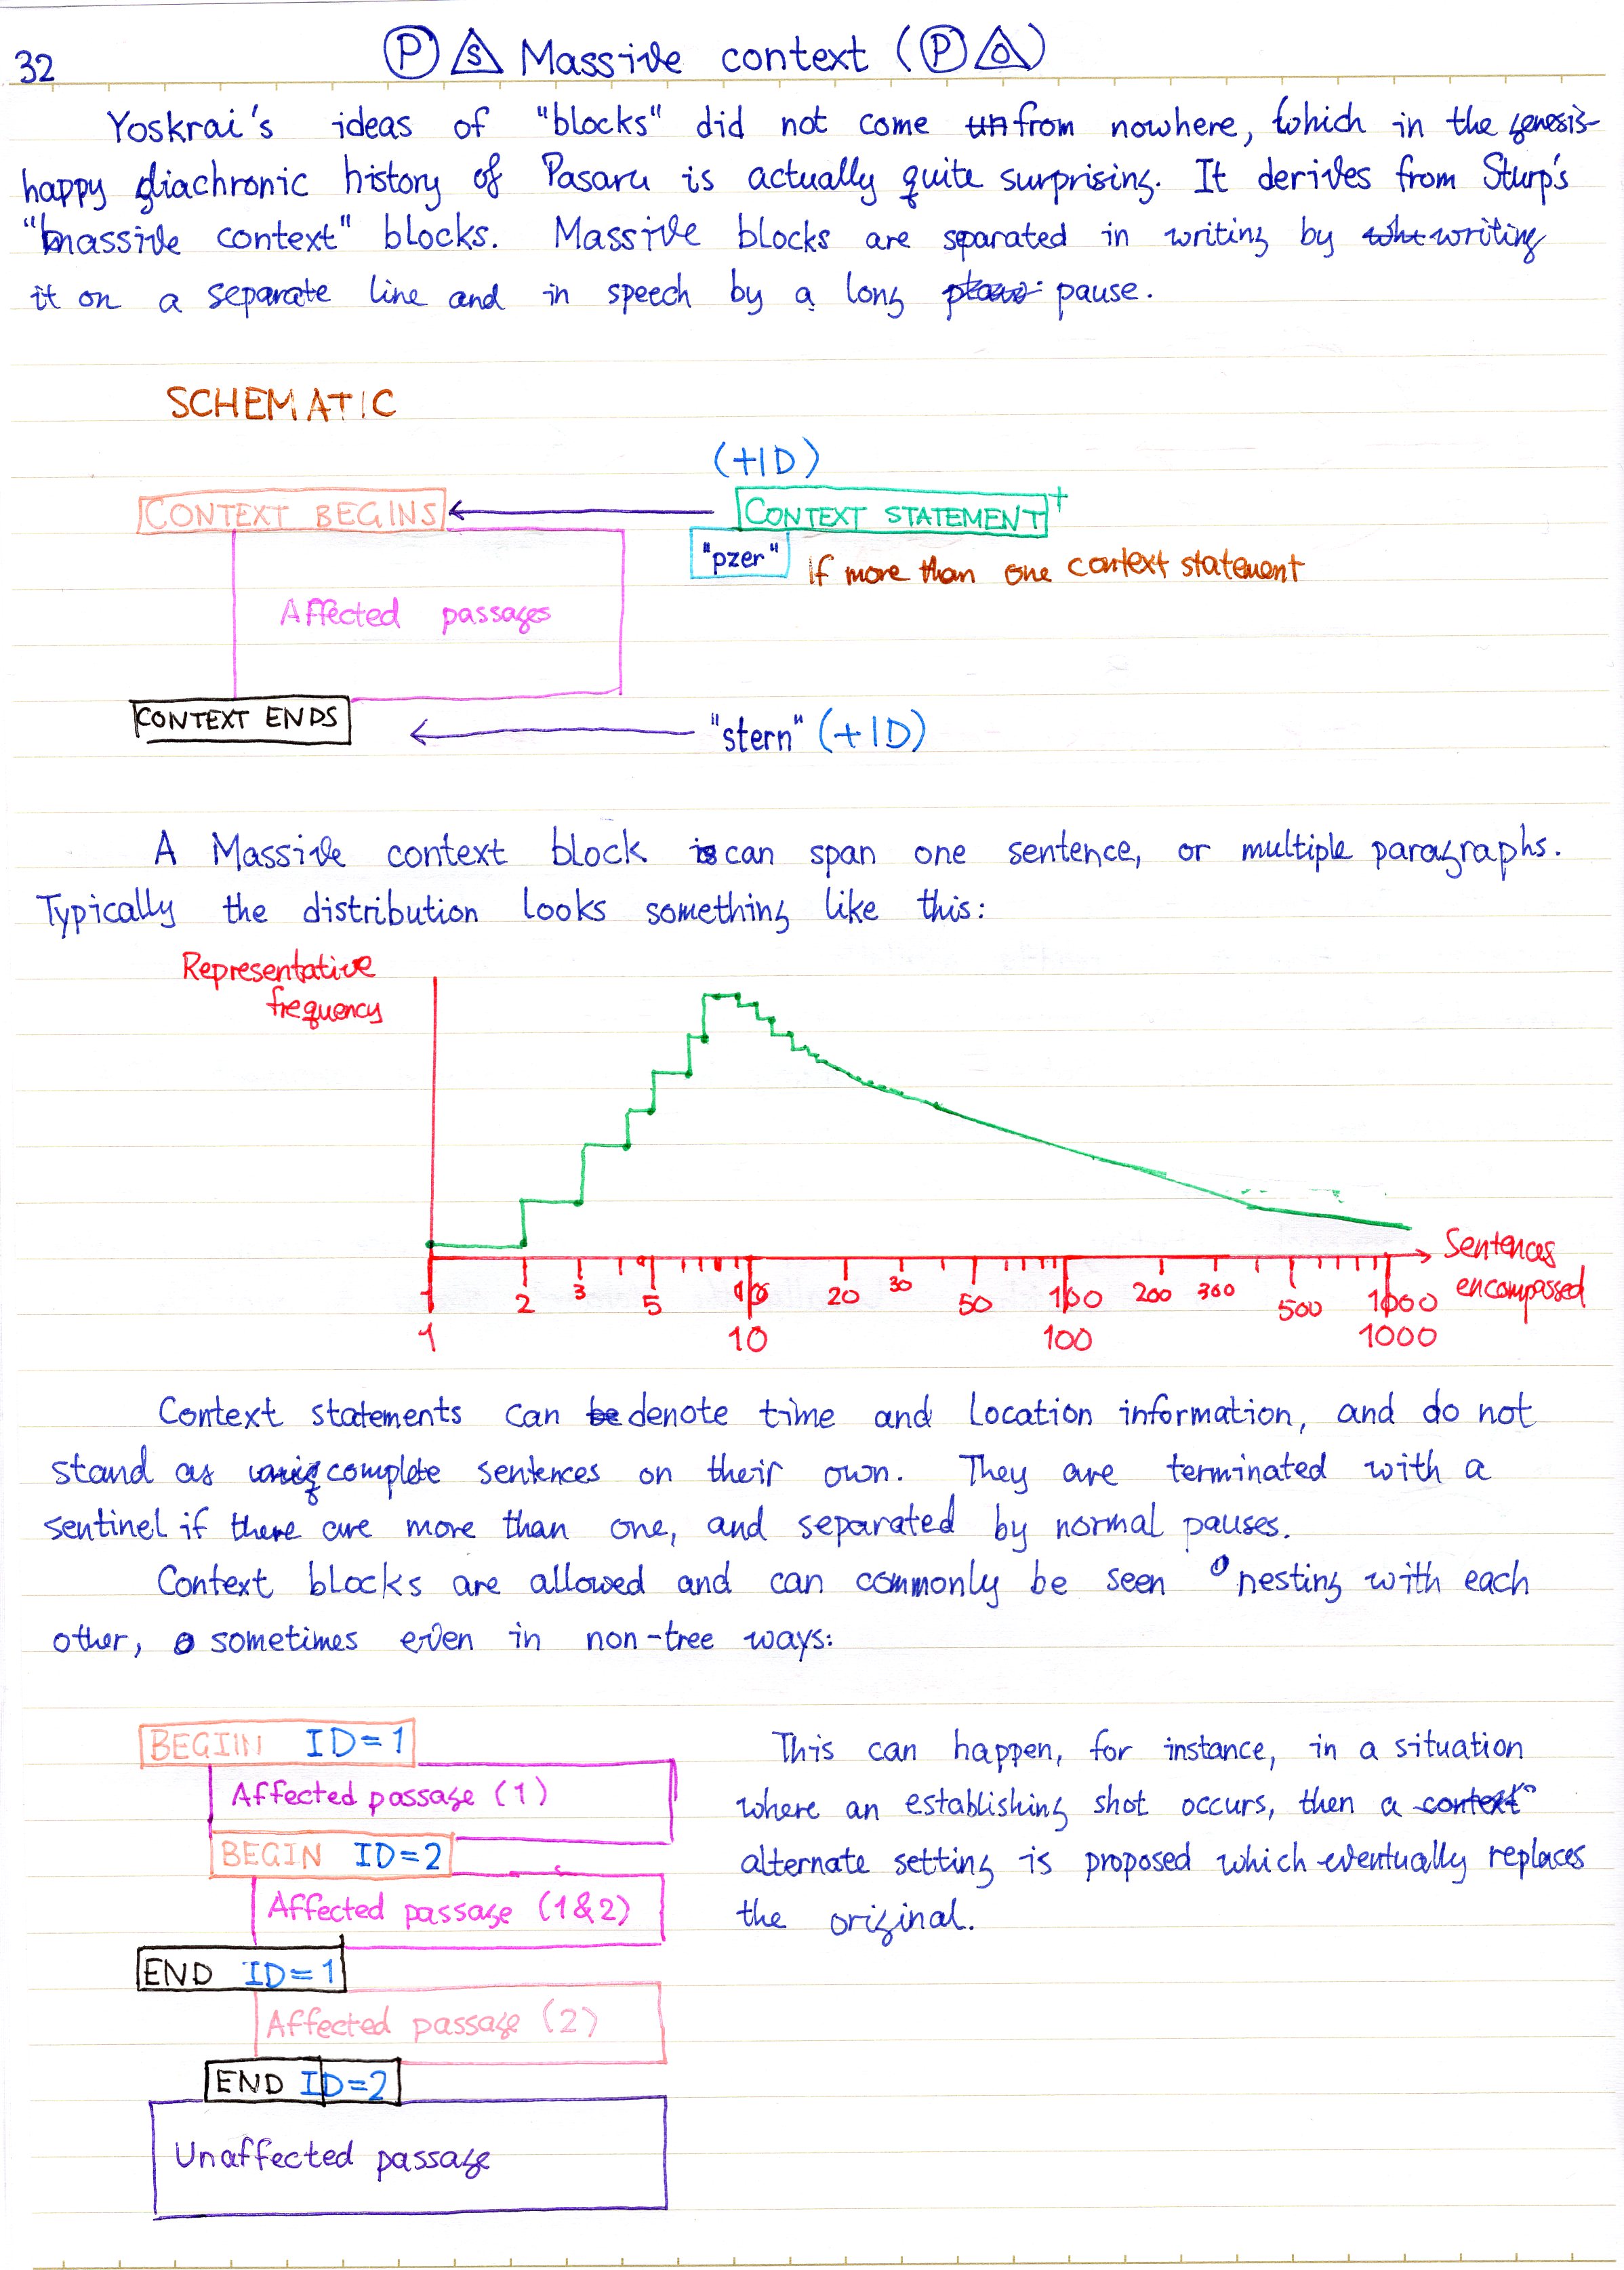 32
Ⓟ Ⓢ Massive context (Ⓟ Ⓞ)
Yoskrai's ideas of "blocks" did not come from nowhere, which in the genesis-
happy diachronic history of Pasaru is actually quite surprising. It derives from Sturp's
"massive context" blocks. Massive blocks are sparated in writing by writing
it on a separate line and in speech by a long pause.
SCHEMATIC
(+ID)
CONTEXT BEGINS
CONTEXT STATEMENT+
"pzer" if more than one context statement
Affected passages
CONTEXT ENDS
"stern" (+ID)
A Massive context block can span one sentence, or multiple paragraphs.
Typically the distribution looks something like this:
Representative
frequency
Sentences
encompassed
1 2 3 5 10 20 30 50 100 200 300 500 1000
1 10 100 1000
Context statements can denote time and location information, and do not
stand as complete sentences on their own. They are terminated with a
sentinel if there are more than one, and separated by normal pauses.
Context blocks are allowed and can commonly be seen nesting with each
other, sometimes even in non-tree ways:
BEGIN ID=1
Affected passage (1)
BEGIN ID=2
Affected passage (1&2)
END ID=1
Affected passage (2)
END ID=2
Unaffected passage
This can happen, for instance, in a situation
where an establishing shot occurs, then a
alternate setting is proposed which eventually replaces
the original.